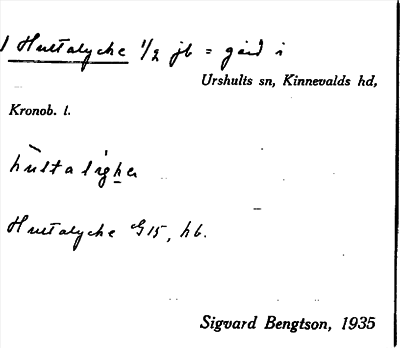 1 Hultalycke 1/2 jb = gård i
Urshults sn, Kinnevalds hd,
Kronob. l.
hùltalýgka
Hultalycke G15, hb.
Sigvard Bengtson, 1935